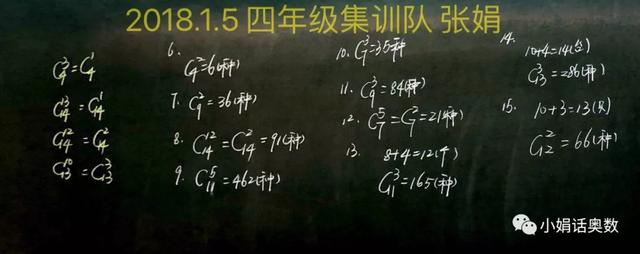 2018.1.5 四年级集训队 张娟
C₄³=C₄¹
C₁₄¹³=C₁₄¹
C₁₄¹²=C₁₄²
C₁₃¹⁰=C₁₃³
6.
C₄²=6(种)
7. C₉²=36(种)
8. C₁₄¹²=C₁₄²=91(种)
9. C₁₁⁵=462(种)
10. C₇³=35种
11. C₉³=84(种)
12. C₇⁵=C₇²=21(种)
13. 8+4=12(个)
C₁₁³=165(种)
14.
10+4=14(台)
C₁₃³=286(种)
15. 10+3=13(只)
C₁₂²=66(种)
小娟话奥数